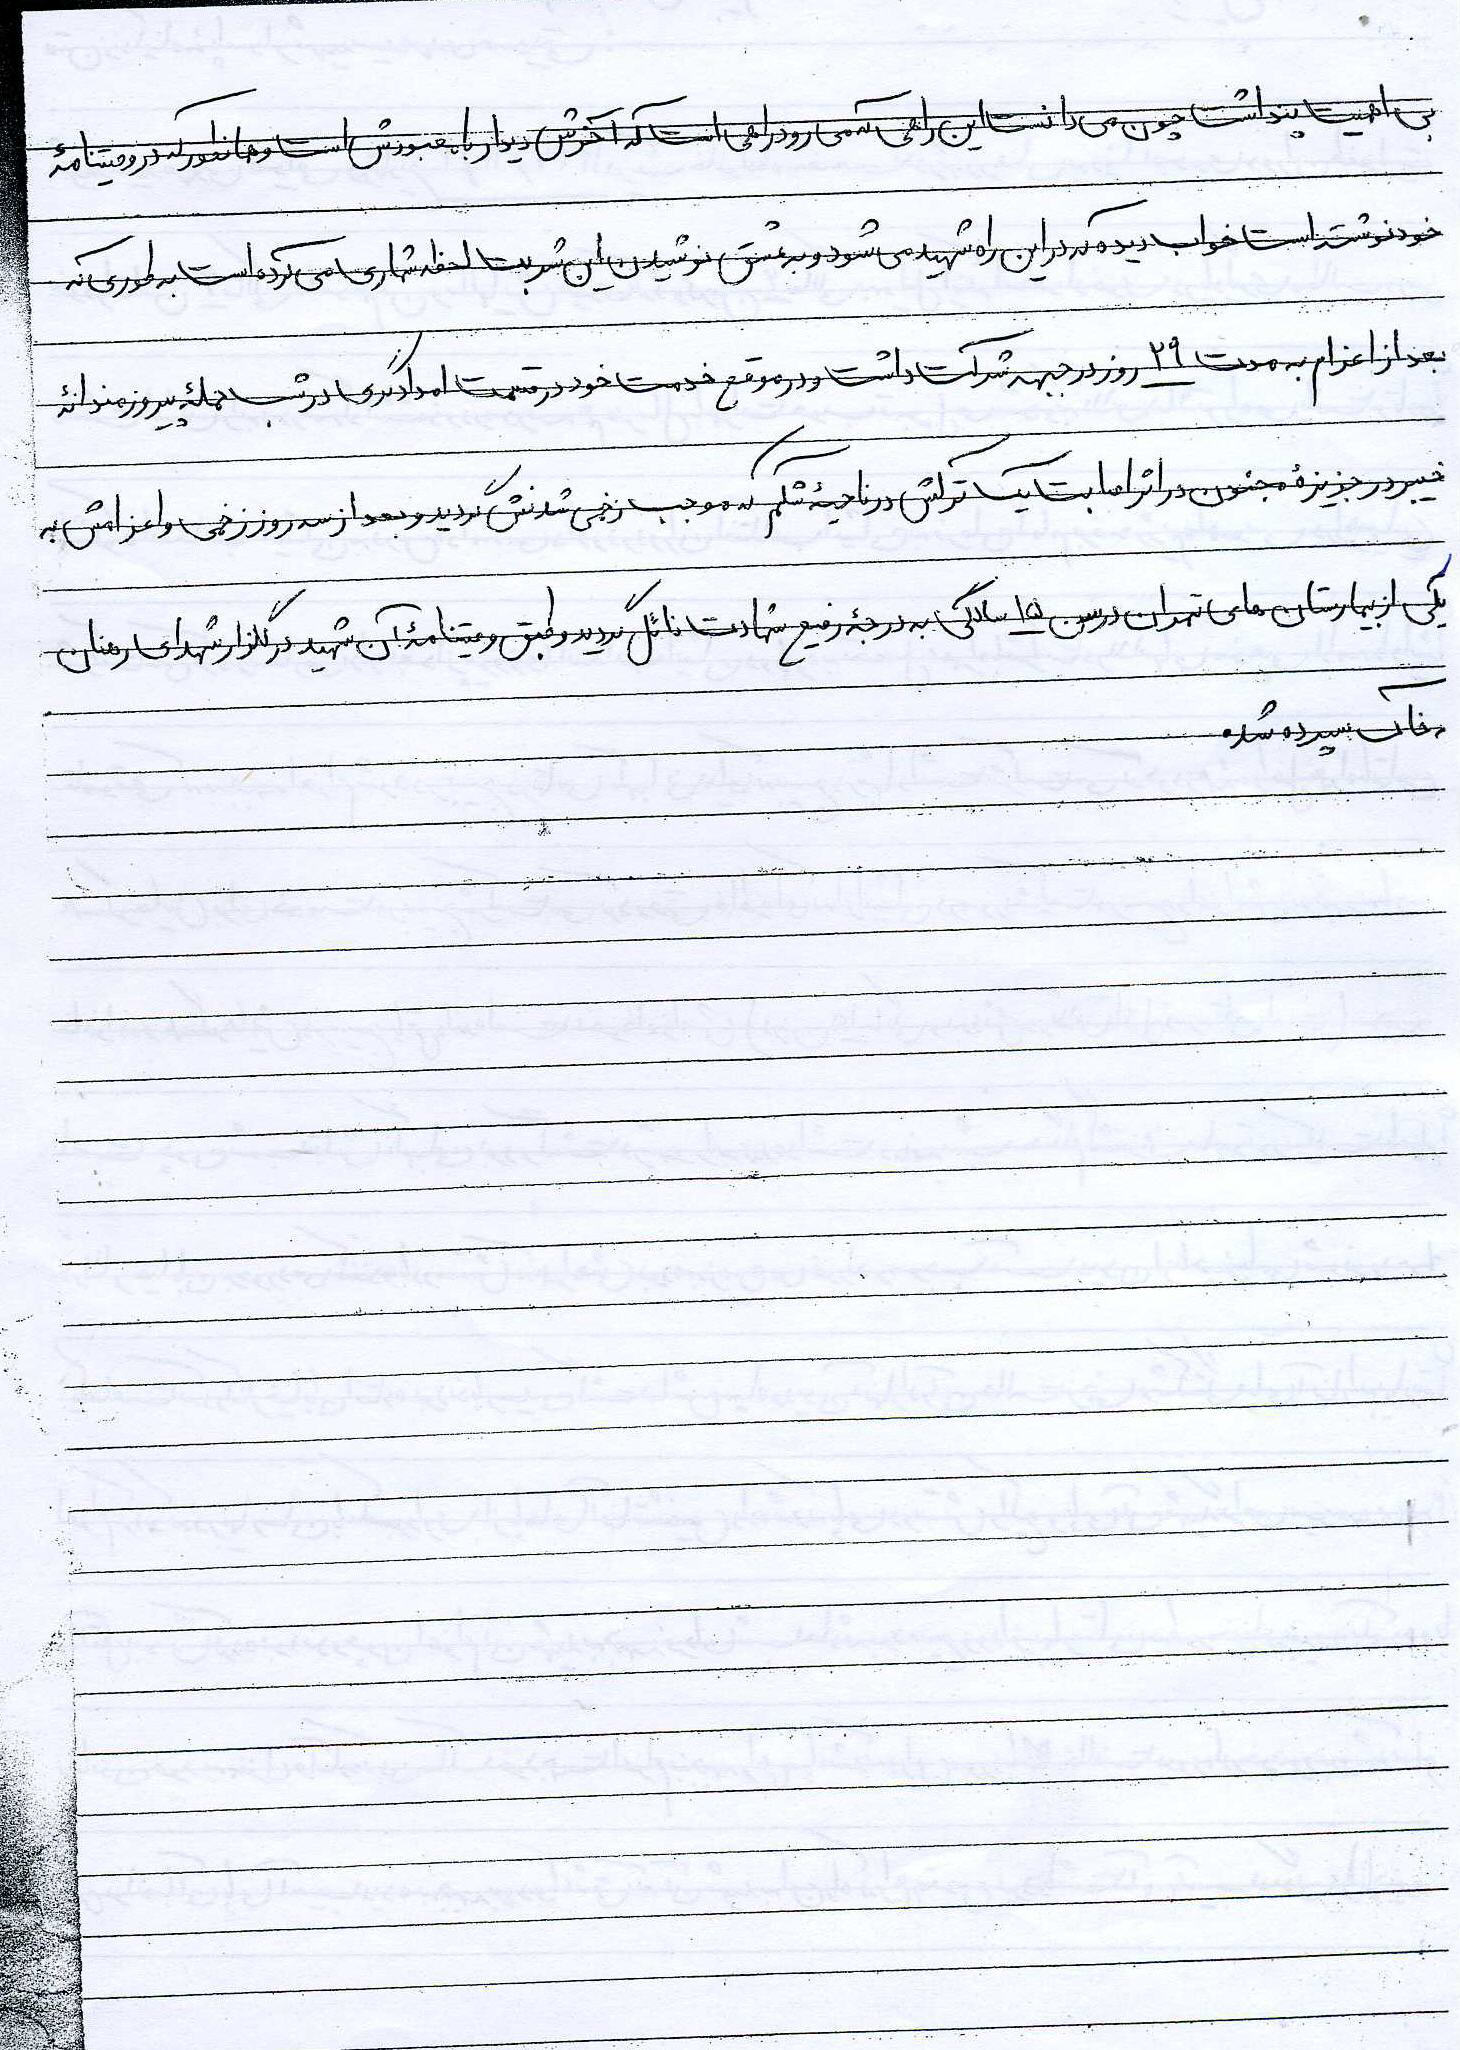 بی اهمیت پنداشت چون می دانست این راهی که می رود راهی است که آخرش دیدار با معبودش است و همانطور که در وصیتنامهٔ
خود نوشته است خواب دیده که در این راه شهید می شود و به عشق نوشیدن این شربت لحظه شماری می کرده است به طوری که
بعد از اعزام به مدت ۲۹ روز در جبهه شرکت داشت و در موقع خدمت خود در قسمت امدادگری در شب حملهٔ پیروزمندانهٔ
خیبر در جزیزهٔ مجنون در اثر اصابت یک ترکش در ناحیهٔ شکم که موجب زخمی شدنش گردید و بعد از سه روز زخمی و اعزامش به
یکی از بیمارستان های تهران در سن ۱۵ سالگی به درجهٔ رفیع شهادت نائل گردید و طبق وصیتنامهٔ آن شهید در گلزار شهدای رهنان
خاک سپرده شده